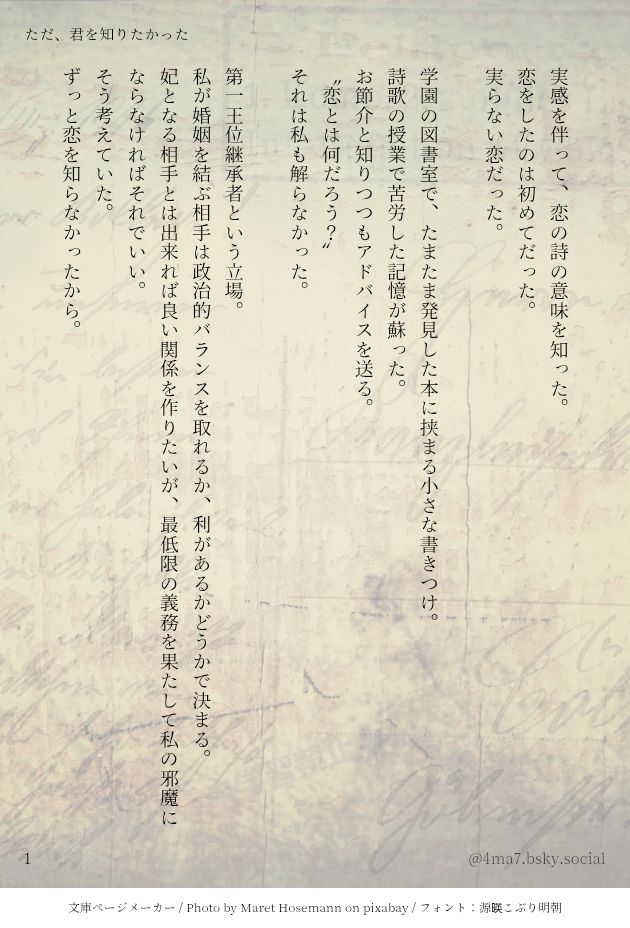 ただ、君を知りたかった
実感を伴って、恋の詩の意味を知った。
恋をしたのは初めてだった。
実らない恋だった。
学園の図書室で、たまたま発見した本に挟まる小さな書きつけ。
詩歌の授業で苦労した記憶が蘇った。
お節介と知りつつもアドバイスを送る。
〝恋とは何だろう？〟
それは私も解らなかった。
第一王位継承者という立場。
私が婚姻を結ぶ相手は政治的バランスを取れるか、利があるかどうかで決まる。
妃となる相手とは出来れば良い関係を作りたいが、最低限の義務を果たして私の邪魔に
ならなければそれでいい。
そう考えていた。
ずっと恋を知らなかったから。
1
@4ma7.bsky.social
文庫ページメーカー / Photo by Maret Hosemann on pixabay / フォント：源暎こぶり明朝